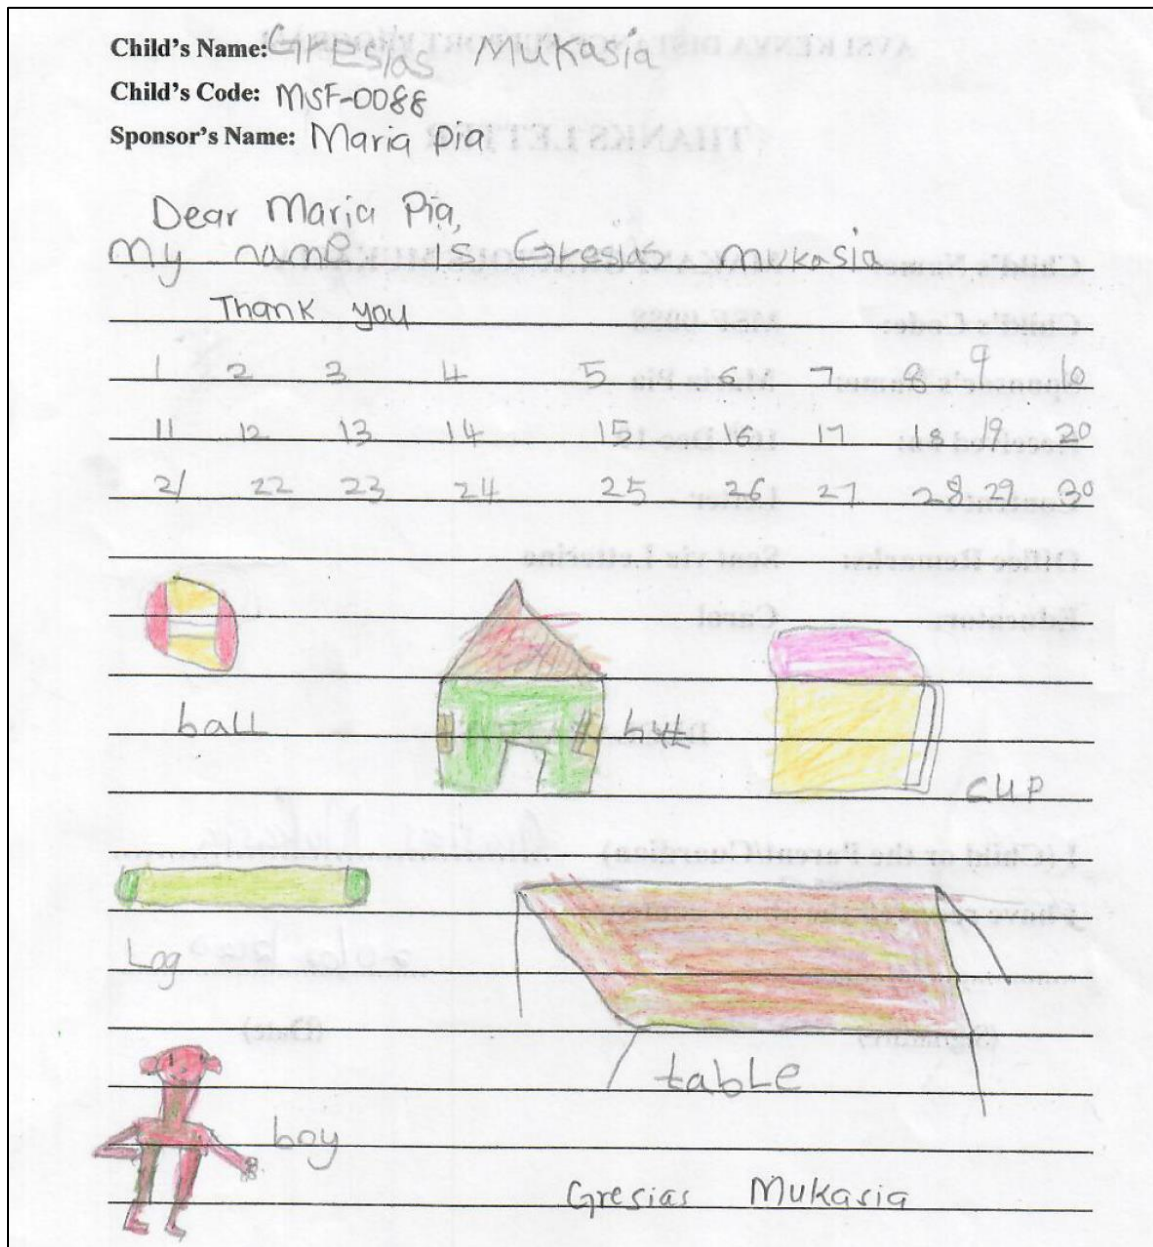 Child's Name: Gresias Mukasia
Child's Code: MSF-0088
Sponsor's Name: Maria Pia
Dear Maria Pia,
My name is Gresias mukasia
Thank you
1 2 3 4 5 6 7 8 9 10
11 12 13 14 15 16 17 18 19 20
21 22 23 24 25 26 27 28 29 30
ball hut
cup
Log
table
boy
Gresias Mukasia